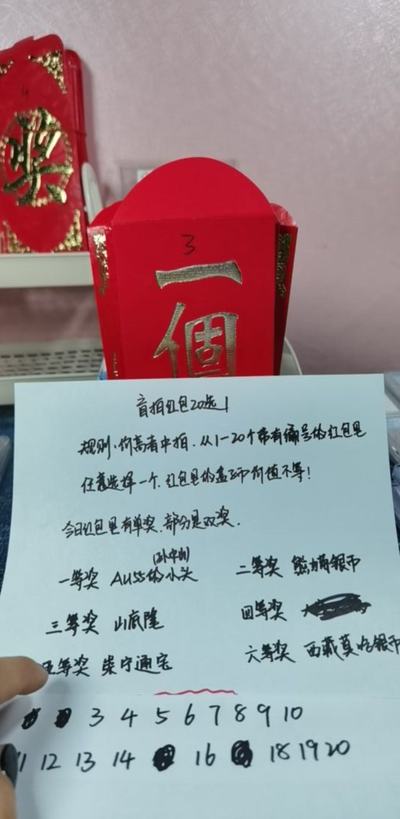 奖
3
一個
盲拍红包20选1
规则:价高者中拍.从1-20个带有编号的红包里
任意选择一个.红包里的盒子币价值不等!
今日红包里有单奖.部分是双奖.
(孙中山)
一等奖 AU55的小头 二等奖 熊猫银币
三等奖 山底隆 四等奖
五等奖 崇宁通宝 六等奖 西藏真
3 4 5 6 7 8 9 10
12 13 14 16 18 19 20